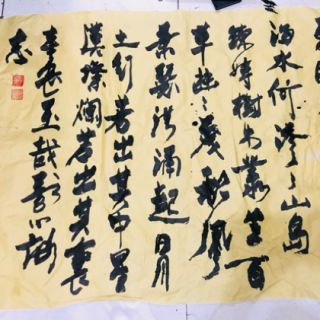 海水何澹々山島
竦峙樹木叢生百
草茂秋風
瑟洪涌起日月
之行若出其中星
漢燦爛若出其裏
幸甚至哉歌以詠
志